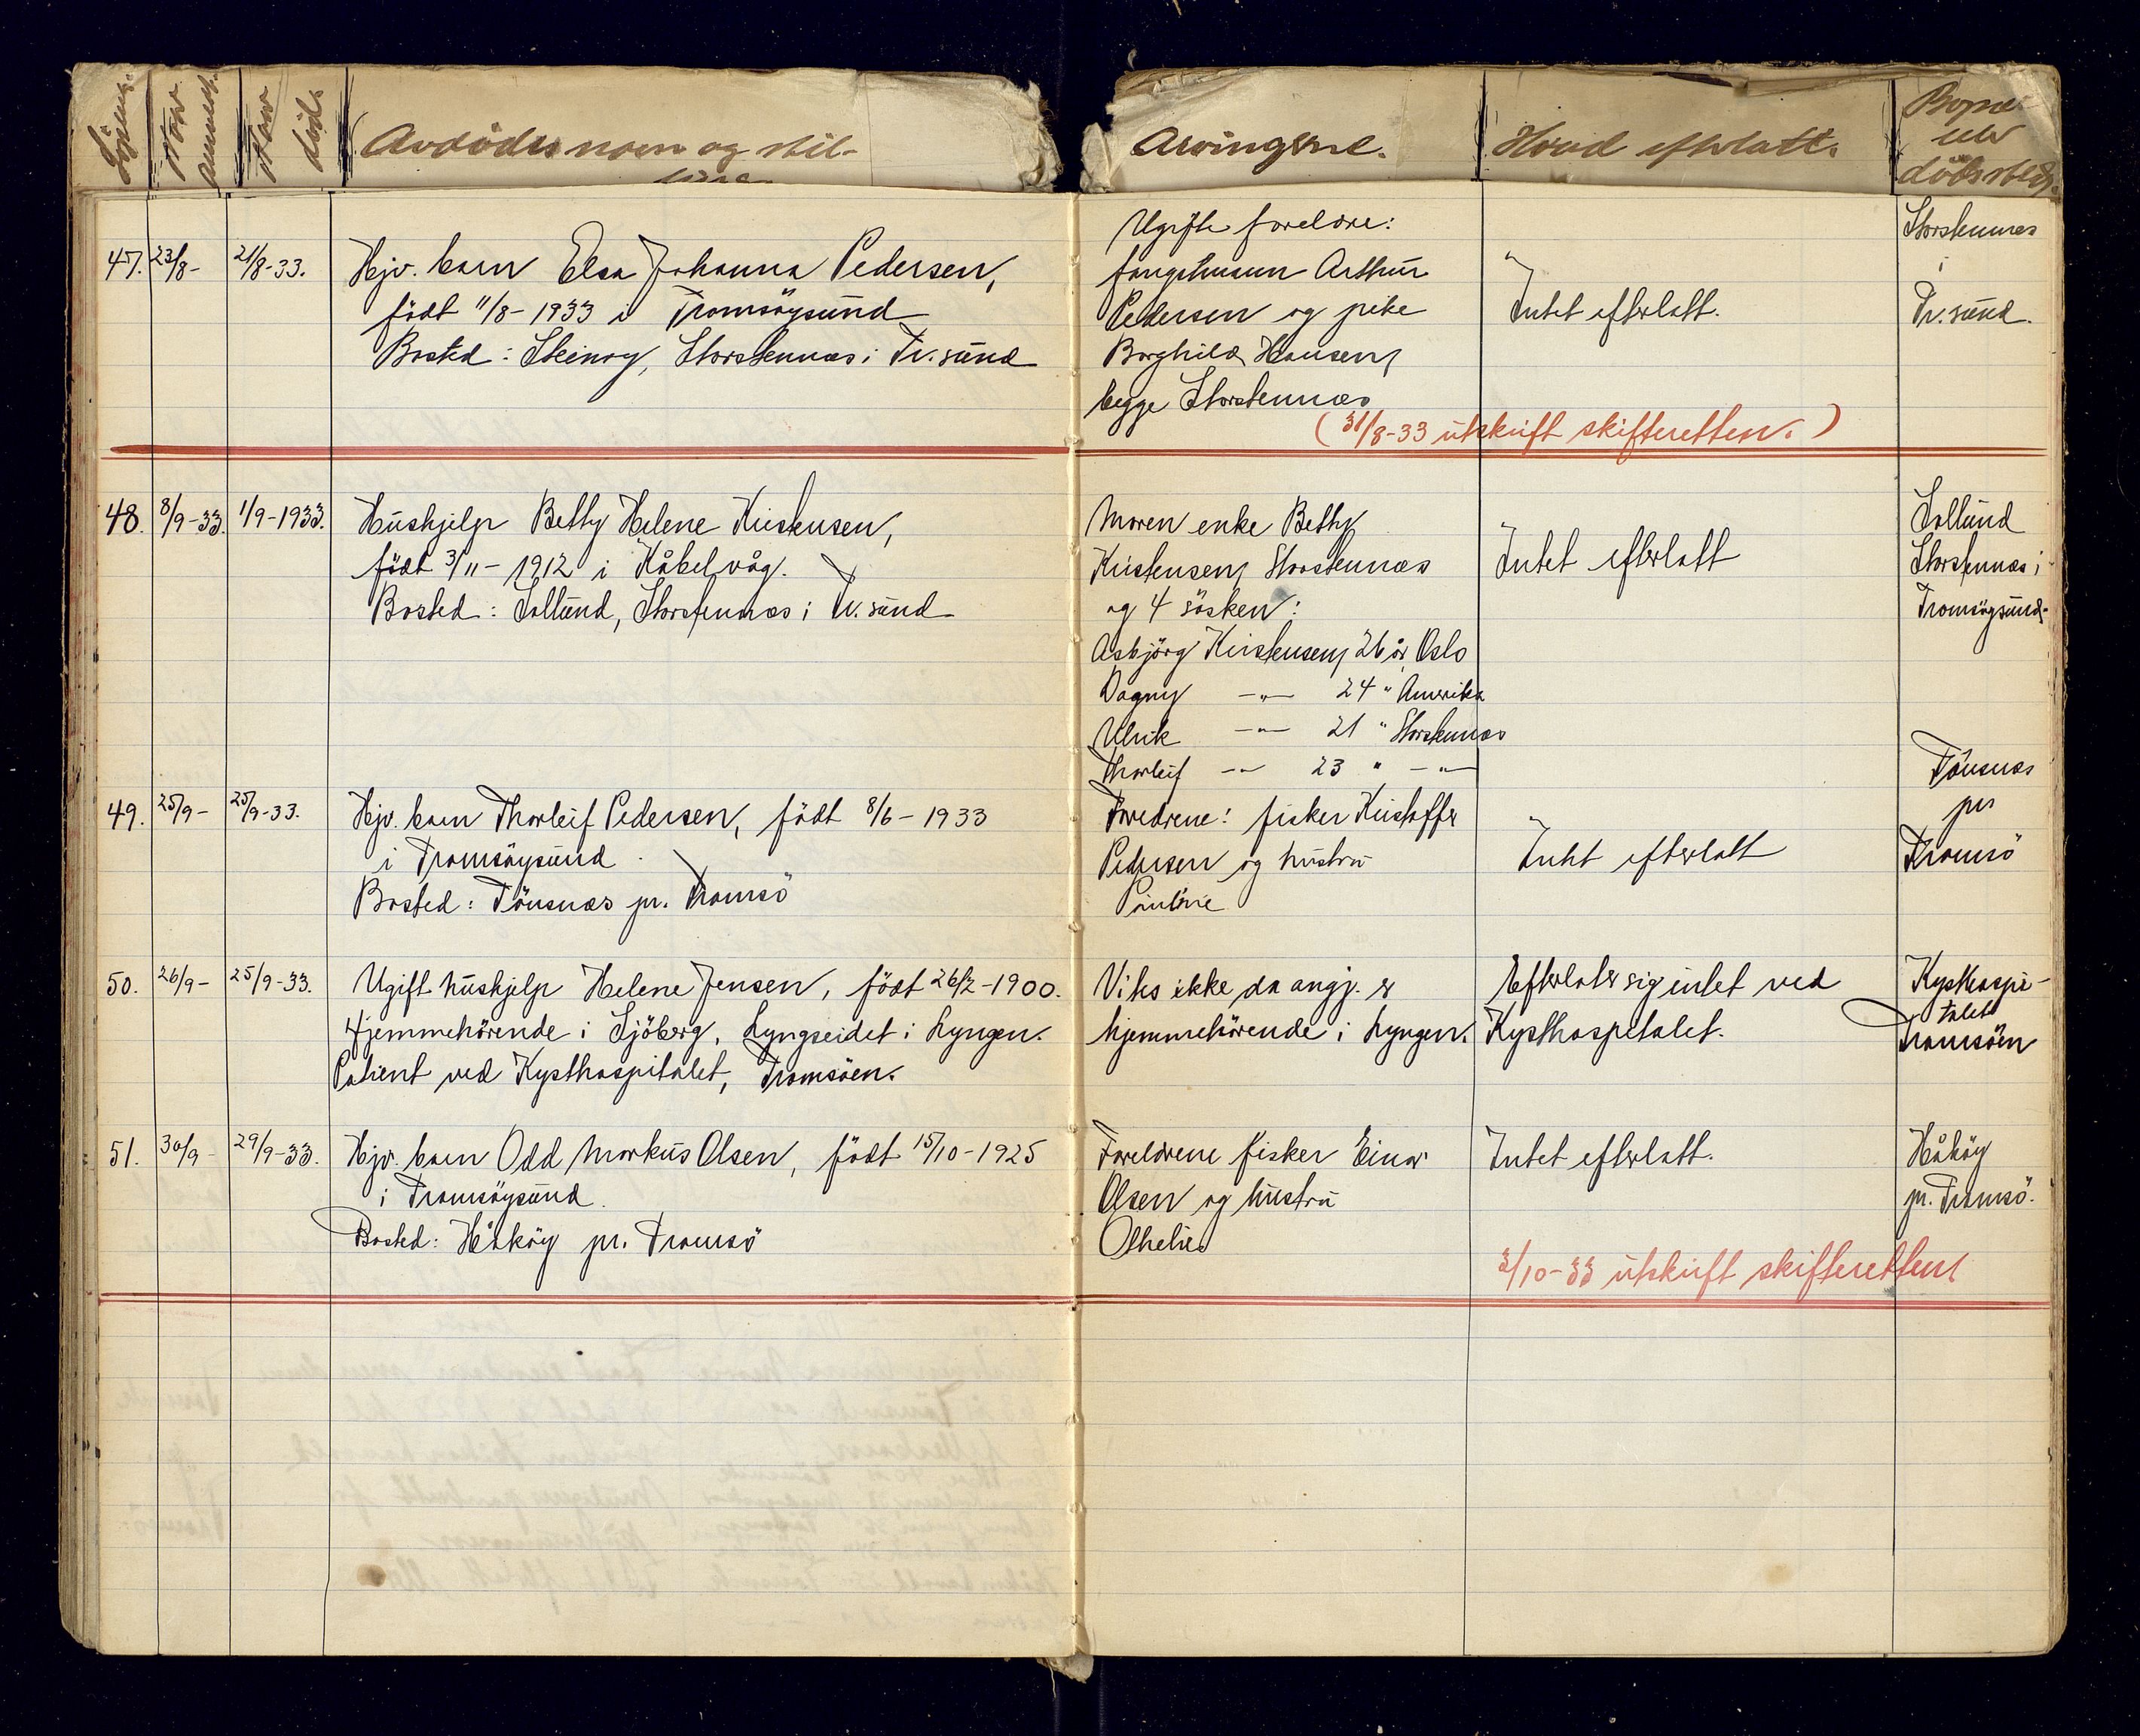 Löpenr.
Når
anmeldt.
Når
död.
Avdödes navn og stil-
ling.
Arvingene.
Hvad efterlatt.
Bopæl
eller
dödssted.
47.
23/8-
21/8-33.
Hjv. barn Elsa Johanna Pedersen,
födt 11/8-1933 i Tromsöysund
Bosted: Steinvoy, Storstennæs i Tr.sund
Ugifte foreldre:
fangstmann Arthur
Pedersen og pike
Borghild Hansen,
begge Storstennæs
Intet efterlatt.
Storstennæs
i
Tr.sund.
(31/8-33 utskrift skifteretten.)
48.
8/9-33.
1/9-1933.
Hushjelp Betty Helene Kristensen,
födt 3/11-1912 i Kåbelvåg.
Bosted: Sollund, Storstennæs i Tr.sund
Moren enke Betty
Kristensen, Storstennæs
og 4 sösken:
Asbjörg Kristensen, 26 år, Oslo
Dagny -"- 24 " Amerika
Ulrik -"- 21 " Storstennæs
Thorleif -"- 23 " -"-
Intet efterlatt
Sollund
Storstennæs i
Tromsöysund.
49.
25/9-
25/9-33.
Hjv. barn Thorleif Pedersen, födt 8/6-1933
i Tromsöysund.
Bosted: Tönsnæs pr. Tromsö
Foredrene: fisker Kristoffer
Pedersen og hustru
Pauline
Intet efterlatt
Tönsnæs
pr
Tromsö
50.
26/9-
25/9-33.
Ugift hushjelp Helene Jensen, födt 26/2-1900.
Hjemmehörende i Sjöberg, Lyngseidet i Lyngen.
Patient ved Kysthospitalet, Tromsöen.
Vites ikke da angj. er
hjemmehörende i Lyngen.
Efterlater sig intet ved
Kysthospitalet.
Kysthospi-
talet
Tromsöen
51.
30/9-
29/9-33.
Hjv. barn Odd Markus Olsen, födt 15/10-1925
i Tromsöysund.
Bosted: Håköy pr. Tromsö
Foreldrene fisker Einar
Olsen og hustru
Othelie
Intet efterlatt.
Håköy
pr. Tromsö.
3/10-33 utskrift skifteretten